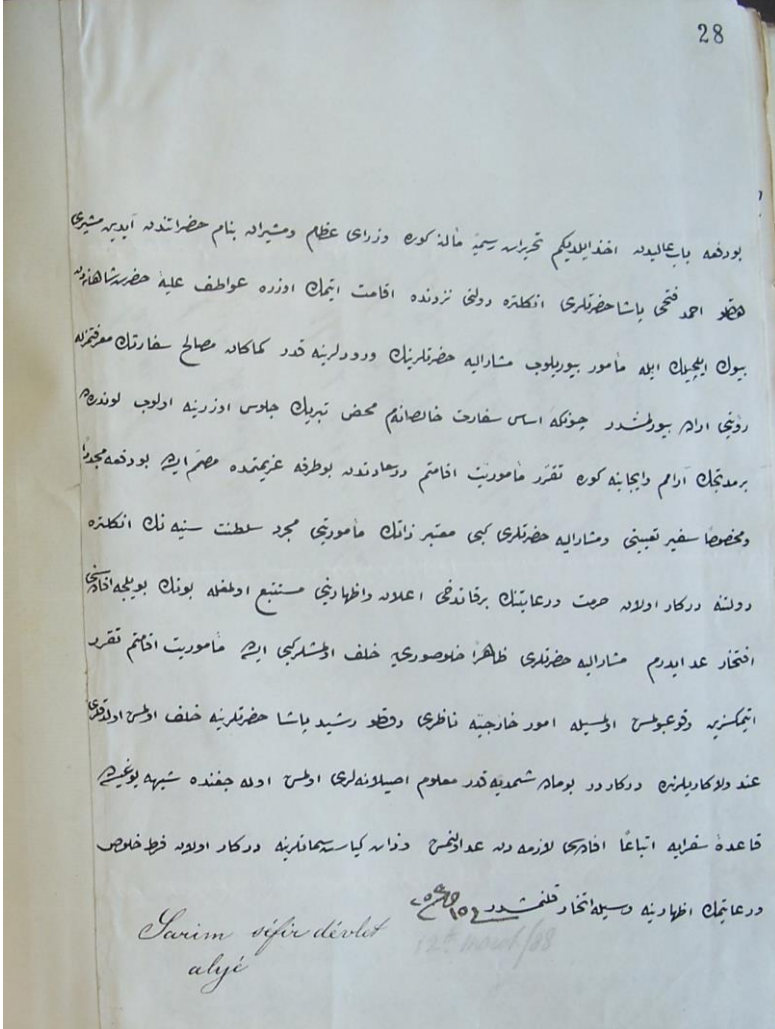 28
بودفعه باب عاليدن اخذ ايلديكم تحريرات رسميه مآلنه كوره وزراى عظام ومشيران بنام حضراتندن آيدين مشيرى
احمد فتحى پاشا حضرتلرى انكلتره دولتى نزدنده اقامت ايتمك اوزره عواطف عليۀ حضرت شاهانه‌دن
بيوك ايلچيلك ايله مأمور بيوريلوب مشاراليه حضرتلرينك ورودلرينه قدر كماكان مصالح سفارتك معرفتمزله
رؤيتى اراده بيورلمشدر چونكه اساس سفارت خالصانه‌م محض تبريك جلوس اوزرينه اولوب لوندره‌ده
بر مدتجك آرامم وايجابنه كوره تقرر مأموريت اقامتم درسعادتدن بو طرفه عزيمتمده مصمم ايسه بودفعه مجددًا
ومخصوصًا سفير تعيينى ومشاراليه حضرتلرى كبى معتبر ذاتك مأموريتى مجرد سلطنت سنيه نك انكلتره
دولتنه دركار اولان حرمت ورعايتنك برقاتدخى اعلان واظهارينى مستتبع اولمغله بونك بويلجه افاده‌سنى
افتخار عد ايدرم مشاراليه حضرتلرى ظاهرًا خلوصورى‌يه خلف اولمشلر كبى ايسه مأموريت اقامتم تقرر
ايتمكسزين وقوعبولمش اولمسيله امور خارجيه ناظرى دولتلو رشيد پاشا حضرتلرينه خلف اولمش اولدقلرى
عند ولاكاريلرنده دركاردر بوماده شمدى‌يه قدر معلوم اصيلانه‌لرى اولمش اوله جغنده شبهه يوغيسه‌ده
قاعدۀ سفرايه اتباعًا افاده‌سى لازمه دن عد اولنمش وذات كياست‌سماتلرينه دركار اولان فرط خلوص
ورعايتمك اظهارينه وسيله اتخاذ قلنمشدر
Sarim séfir dévlet
alyé
12th March/38